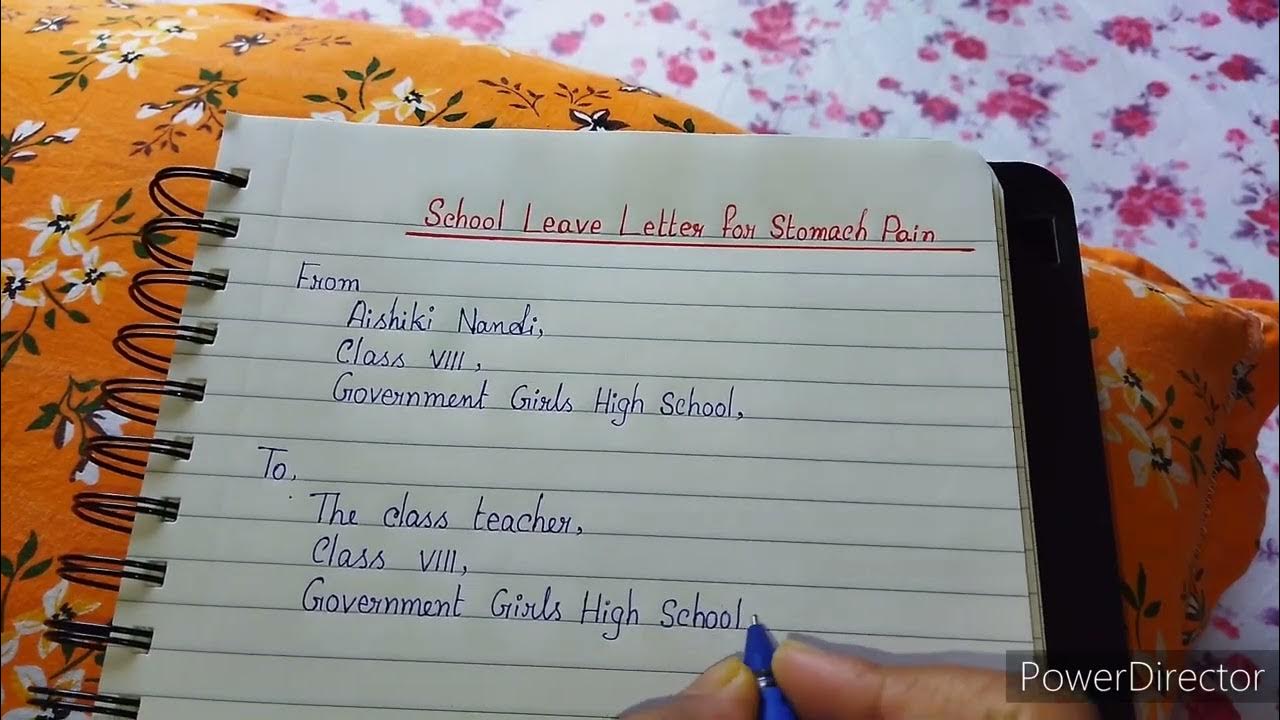 School Leave Letter for Stomach Pain
From
Aishiki Nandi,
Class VIII,
Government Girls High School,
To,
The class teacher,
Class VIII,
Government Girls High School,
PowerDirector